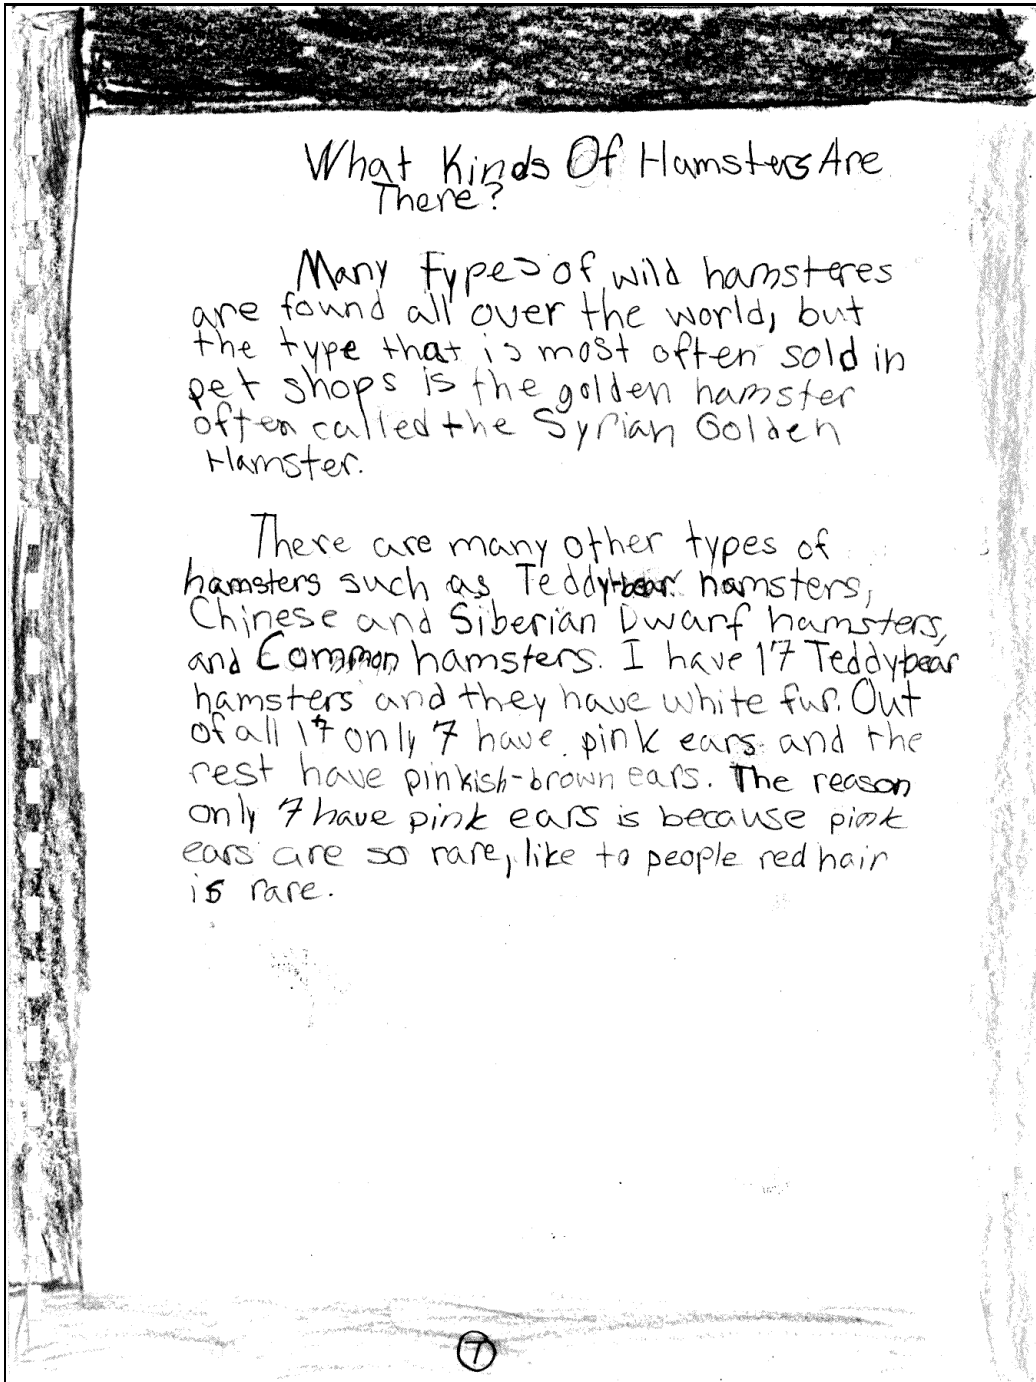 What Kinds Of Hamsters Are
There?
Many types of wild hamsteres
are found all over the world, but
the type that is most often sold in
pet shops is the golden hamster
often called the Syrian Golden
Hamster.
There are many other types of
hamsters such as Teddy-bear hamsters,
Chinese and Siberian Dwarf hamsters,
and Common hamsters. I have 17 Teddy-bear
hamsters and they have white fur. Out
of all 17 only 7 have pink ears and the
rest have pinkish-brown ears. The reason
only 7 have pink ears is because pink
ears are so rare, like to people red hair
is rare.
7